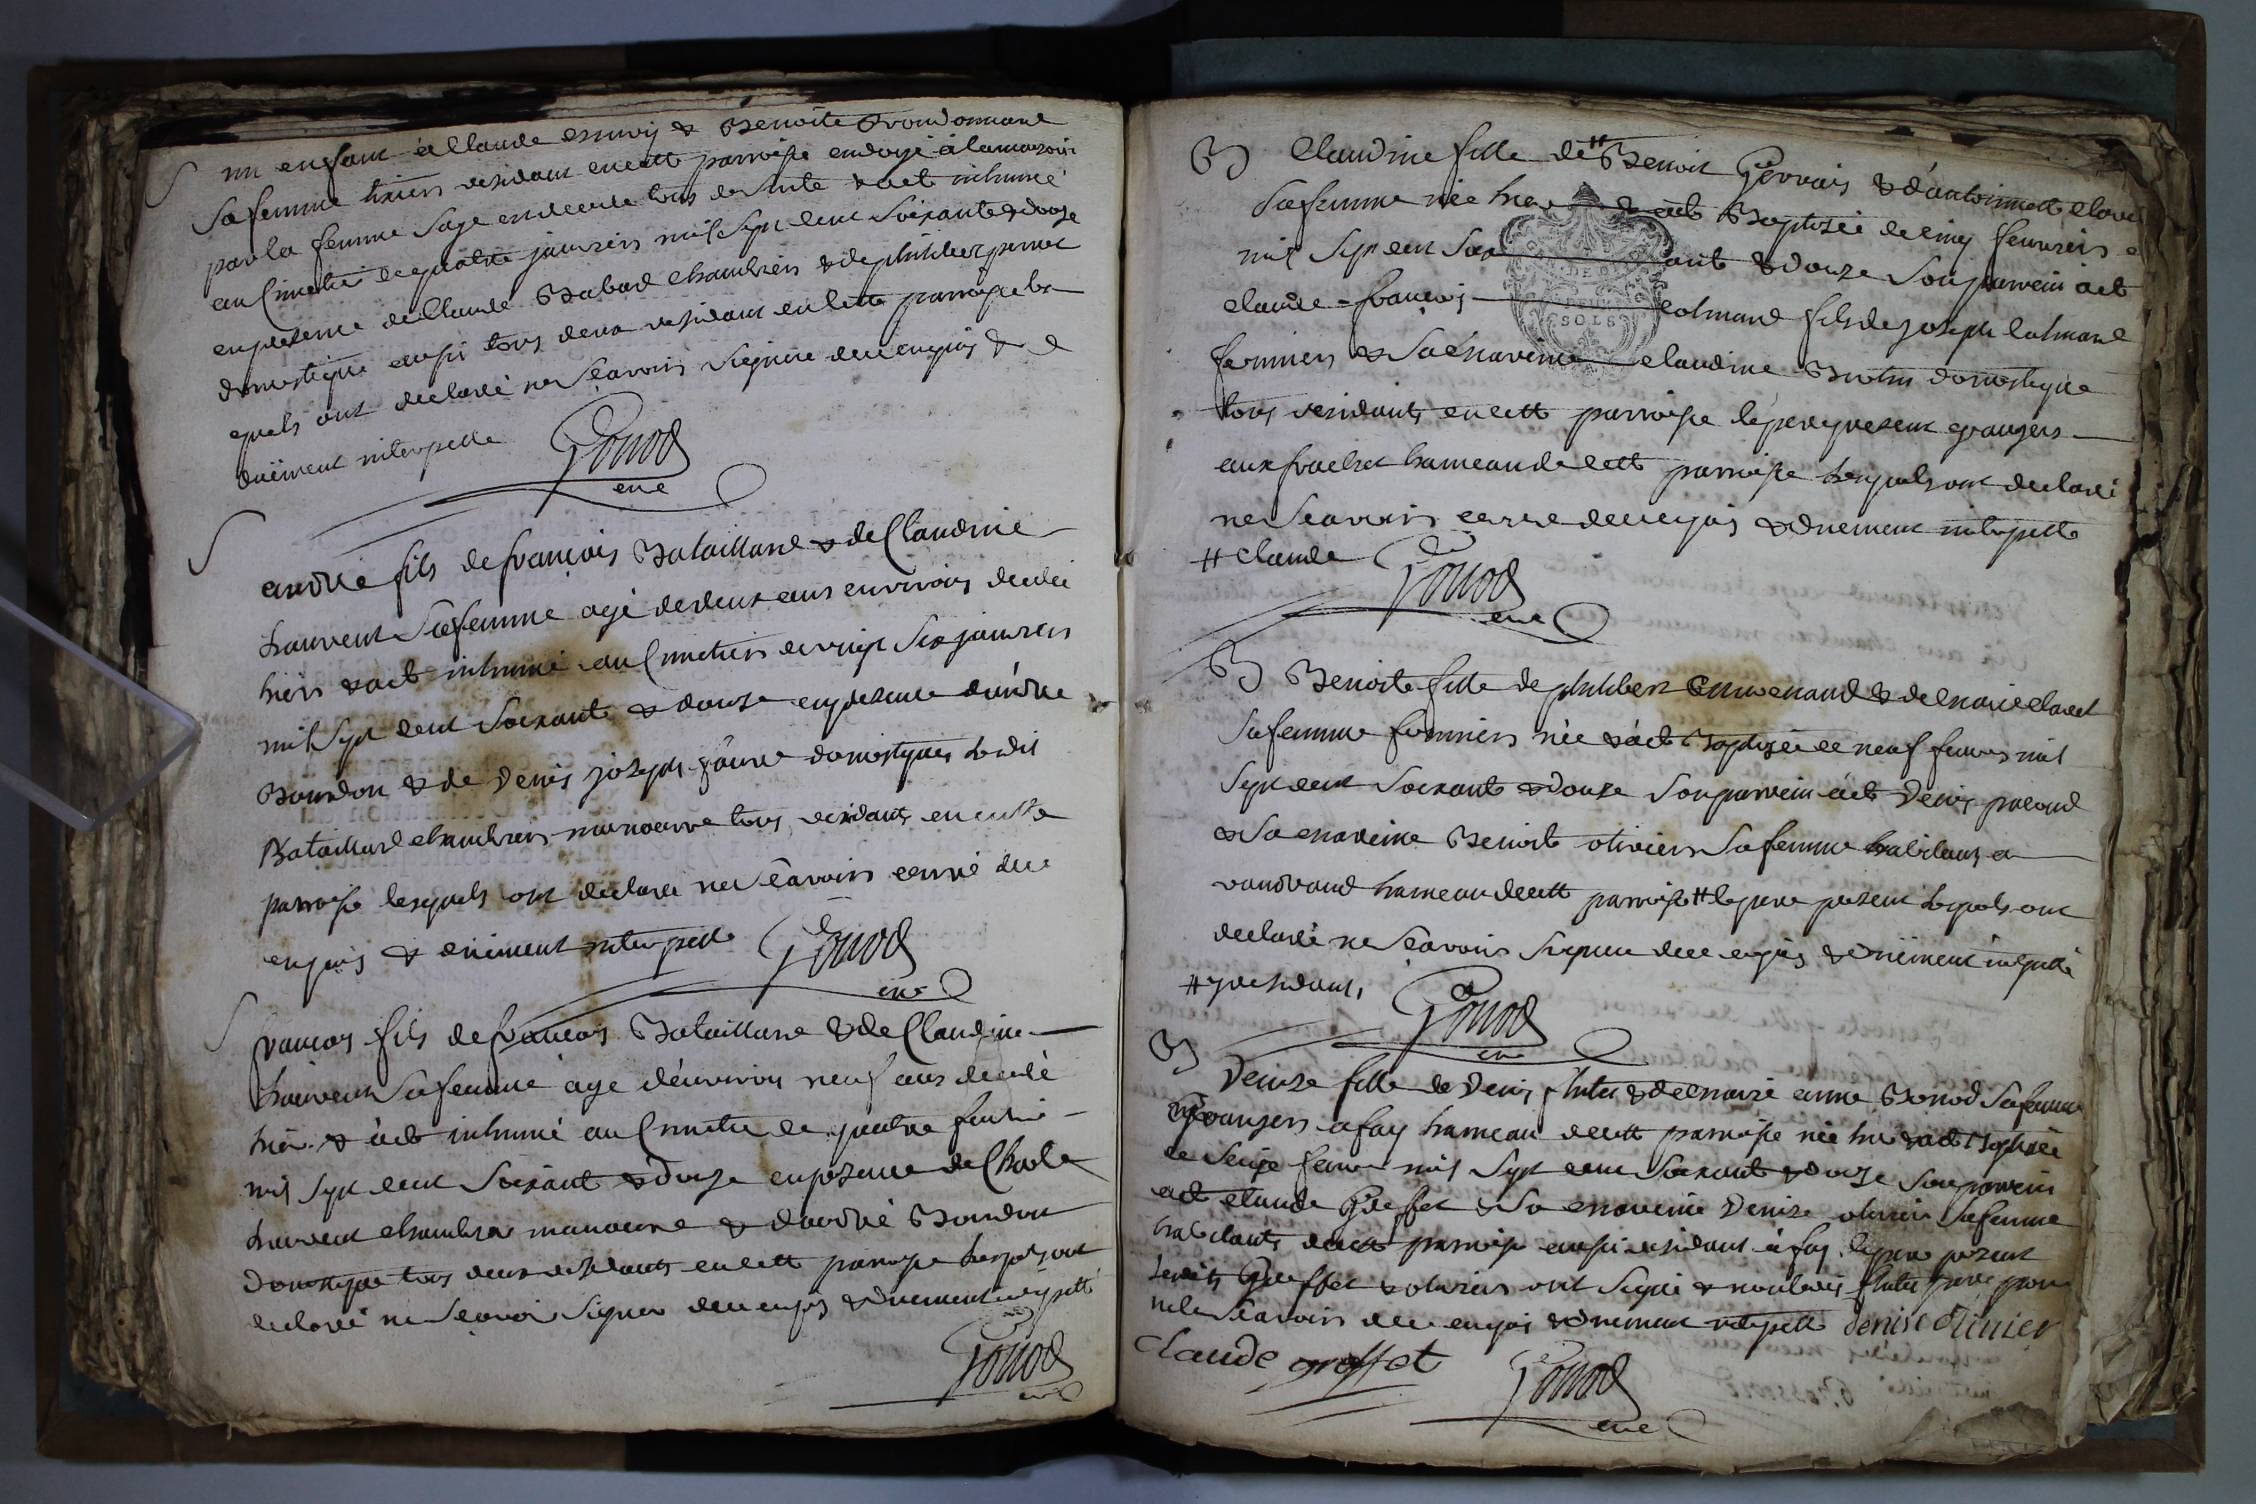 S un enfant à Claude & Benoite
sa femme résidant en cette parroisse endoyé à la maison
par la femme sage en decede tous de suite & a eté inhumé
au Cimetier le quatre janvier mil sept cent soixante & douze
en presence de Claude Babad chambrier & de philibert perret
domestique aussi tous deux residant en cette parroisse les
quels ont declaré ne sçavoir signer de ce enquis &
duëment interpellé Gonod
curé
S andré fils de françois Bataillard & de Claudine
Lauvent sa femme agé de deux ans environs decedé
hier & a eté inhumé au Cimetier le vingt six janvier
mil sept cent soixante & douze en presence d'andré
Bourdon & de Denis joseph favre domestiques ledit
Bataillard chambrier manoeuvre tous residants en cette
parroisse lesquels ont declaré ne sçavoir ecrire de ce
enquis & duëment interpellé Gonod
curé
S françois fils de françois Bataillard & de Claudine
Lauvent sa femme agé d'environ neuf ans decedé
hier & a eté inhumé au Cimetie le quatre
mil sept cent soixante & douze en présence de Charle
Lauvent chambrier manoeuvre & d'andré Bourdon
domestique tous deux residants en cette parroisse lesquels ont
declaré ne sçavoir signer de ce enquis & duement interpellé
Gonod
curé
B Claudine fille de # Benoit Gervais & d'antoinette
sa femme née hier & a eté Baptisée le cinq fevrier
mil sept cent soixante & douze son parrein a eté
claude françois Colmard fils de joseph Colmard
fermier & sa mareine claudine domestique
tous residants en cette parroisse le pere present granger
aux hameau de cette parroisse lesquels ont declaré
ne sçavoir ecrire de ce enquis & duement interpellé
# Claude Gonod
curé
B Benoite fille de philibert & de marie
sa femme fermiers née & a eté Baptisée le neuf fevrier mil
sept cent soixante & douze son parrein a eté Denis
& sa mareine Benoite olivier sa femme habitans a
hameau de cette parroisse # le pere present lesquels ont
declaré ne sçavoir signer de ce enquis & duëment interpellé
# y residant, Gonod
curé
B Denise fille de Denis & de marie anne Gonod sa femme
grangers a fay hameau de cette parroisse née hier & a eté Baptisée
le seize fevrier mil sept cent soixante & douze son parrein
a eté claude Greffet & sa mareine Denise olivier sa femme
habitants de cette parroisse aussi residant à fay le pere present
lesdits Greffet & olivier ont signé & non le pere pour
ne le sçavoir de ce enquis & duement interpellé denise olivier
claude greffet Gonod
curé